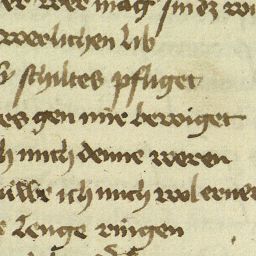 wer mag sin dz wi
werlichen lib
schiltes pfliget
es gen mir bewiget
h mich denne weren
ich mich wol erner
e lenge ringen